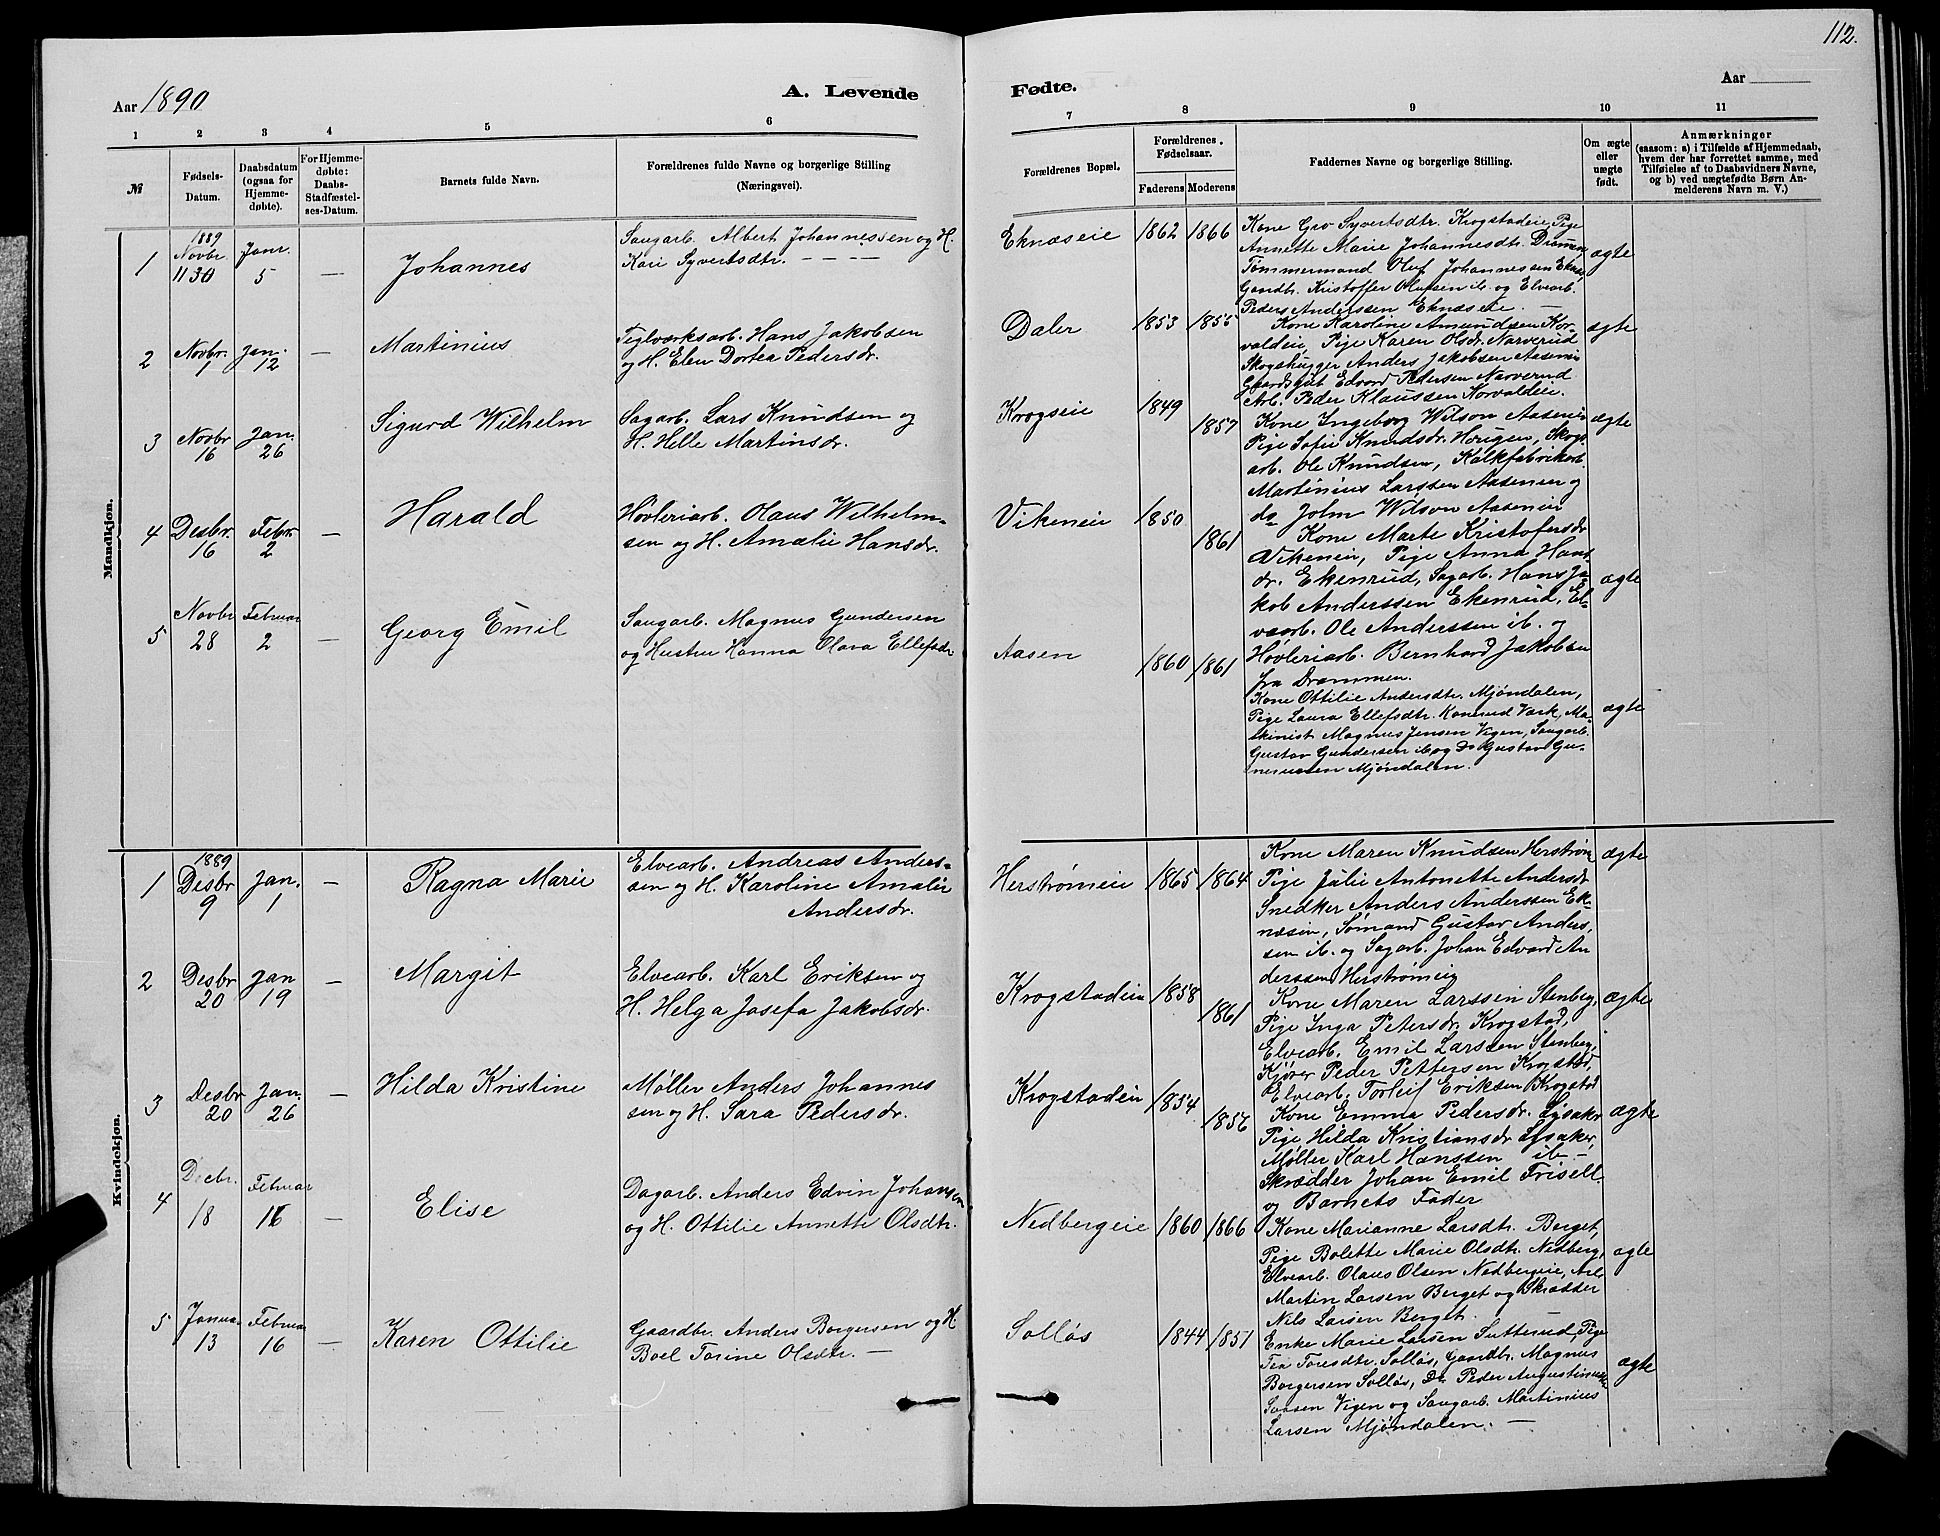 112.
Aar 1890
A. Levende
Fødte.
Aar
1 2 3 4 5 6 7 8 9 10 11
№
Fødsels-
Datum.
Daabsdatum
(ogsaa for
Hjemme-
døbte).
For Hjemme-
døbte:
Daabs-
Stadfæstel-
ses-Datum.
Barnets fulde Navn.
Forældrenes fulde Navne og borgerlige Stilling
(Næringsvei).
Forældrenes Bopæl.
Forældrenes
Fødselsaar.
Faderens Moderens
Faddernes Navne og borgerlige Stilling.
Om ægte
eller
uægte
født.
Anmærkninger
(saasom: a) i Tilfælde af Hjemmedaab,
hvem der har forrettet samme, med
Tilføielse af to Daabsvidners Navne,
og b) ved uægtefødte Børn An-
melderens Navn m. V.)
Mandkjøn.
1
1889
Novbr.
30
Janr.
5
—
Johannes
Saugarb. Albert Johannessen og H.
Kari Syvertsdtr. — — — —
Eknæseie
1862 1866
Kone Gro Syvertsdtr. Krogstadeie, Pige
Annette Marie Johannesdt. Dramen,
Tømmermand Oluf Johannessen
Gaardb. Kristoffer Olufsen ib. og Elvearb.
Peders Anderssen Eknæseie. —
ægte
2
Novbr.
1
Jan.
12
—
Martinius
Teglværksarb. Hans Jakobsen
og H. Elen Dortea Pedersdr.
Daler
1853 1855
Kone Karoline Amundsen Kor-
valdeie, Pige Karen Olsdr. Narverud
Skogshugger Anders Jakobsen Aasenei
Gaardsgut Edvard Pedersen Narverud
Arb. Peder Klaussen Korvaldeie.
ægte
3
Novbr
16
Jan.
26
—
Sigurd Wilhelm
Sagarb. Lars Knudsen og
H. Helle Martinsdr.
Krogseie
1849 1857
Kone Ingeborg Wilson Aasenei
Pige Sofie Knudsdr. Horgen, Skogs
arb. Ole Knudsen, Kalkfabrikarb.
Martinius Larssen Aasenei og
do John Wilson Aasenei
ægte
4
Desbr.
16
Febr.
2
—
Harald
Høvleriarb. Olaus Wilhelm-
sen og H. Amalie Hansdr.
Vikeneie
1850 1861
Kone Marte Kristofersdr
Vikenei, Pige Anna Hans
dr. Ekenrud, Sagarb. Hans Ja-
kob Anderssen Ekenrud, El-
vearb. Ole Anderssen ib. og
Høvleriarb. Bernhard Jakobsen
fra Drammen.
ægte
5
Novbr
28
Februar
2
—
Georg Emil
Saugarb. Magnus Gundersen
og Hustru Hanna Olava Ellefsdr
Aasen
1860 1861
Kone Ottilie Andersdtr. Mjøndalen,
Pige Laura Ellefsdtr. Konerud Værk, Ma-
skinist Magnus Jensen Vigen, Saugarb.
Gustav Gundersen ib. og Do Gustav Gu-
neriussen Mjøndalen.
ægte
Kvindekjøn.
1
1889
Desbr
9
Jan.
1
—
Ragna Marie
Elvearb. Andreas Anders-
sen og H. Karoline Amalie
Andersdr.
Herstrømeie
1865 1864
Kone Maren Knudsen Herstrøm
Pige Julie Antonette Andersdr
Snedker Anders Anderssen Ek-
næseie, Sømand Gustav Anders,
sen ib. og Sagarb. Johan Edvard An
derssen Herstrømeie
ægte
2
Desbr
20
Jan
19
—
Margit
Elvearb. Karl Eriksen og
H. Helga Josefa Jakobsdr.
Krogstadeie
1858 1861
Kone Maren Larssen Stenberg,
Pige Inga Petersdr. Krogstad,
Elvearb. Emil Larssen Stenberg,
Kjører Peder Pettersen Krogstad,
Elvearb. Torleif Eriksen Krogstad
ægte
3
Desbr
20
Jan.
26
—
Hilda Kristine
Møller Anders Johannes
sen og H. Sara Pedersdr.
Krogstadeie
1854 1856
Kone Emma Pedersdr. Lysaker
Pige Hilda Kristiansdr Lysaker,
Møller Karl Hanssen ib —
Skrædder Johan Emil Frisell
og Barnets Fader
ægte
4
Decbr.
18
Februar
16
—
Elise
Dagarb. Anders Edvin Johansen
og H. Ottilie Annette Olsdtr.
Nedbergeie
1860 1866
Kone Marianne Larsdtr. Berget,
Pige Bolette Marie Olsdtr. Nedberg,
Elvearb. Olaus Olsen Nedbergeie, Arb.
Martin Larsen Berget og Skrædder
Nils Larsen Berget.
ægte
5
Januar
13
Februar
16
—
Karen Ottilie
Gaardbr. Anders Borgersen og H
Boel Torine Olsdtr. —
Solløs
1844 1851
Enke Marie Larsen Sutterud, Pige
Tea Toresdtr. Solløs, Gaardbr. Magnus
Borgersen Solløs, Do Peder Augustinussen
Vigen og Saugarb. Martinius
Larsen Mjøndalen. —
ægte